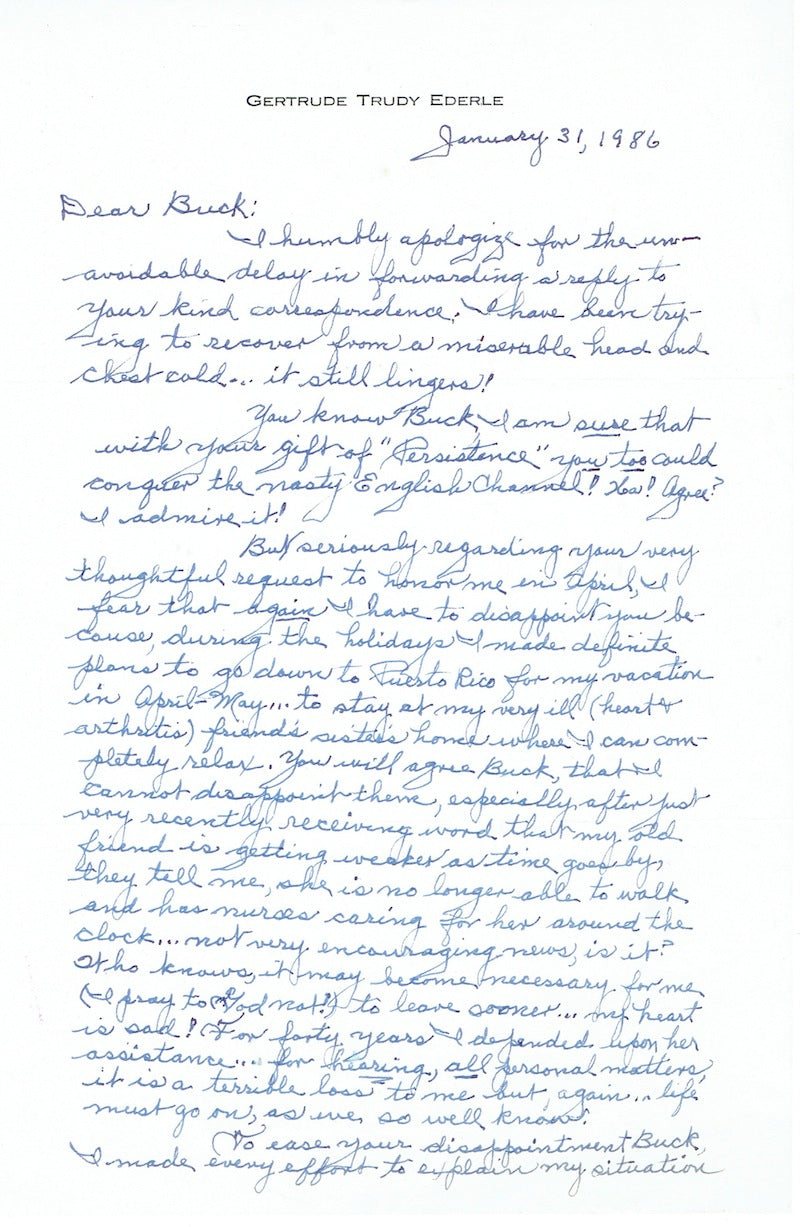 GERTRUDE TRUDY EDERLE
January 31, 1986
Dear Buck:
I humbly apologize for the un-
avoidable delay in forwarding a reply to
your kind correspondence. I have been try-
ing to recover from a miserable head and
chest cold... it still lingers!
You know Buck, I am sure that
with your gift of "Persistence" you too could
conquer the nasty English Channel! Ha! Agree?
I admire it!
But seriously regarding your very
thoughtful request to honor me in April, I
fear that again I have to disappoint you be-
cause, during the holidays I made definite
plans to go down to Puerto Rico for my vacation
in April-May... to stay at my very ill (heart &
arthritis) friend's sister's home where I can com-
pletely relax. You will agree Buck, that I
cannot disappoint them, especially after just
very recently receiving word that my old
friend is getting weaker as time goes by,
they tell me, she is no longer able to walk
and has nurses caring for her around the
clock... not very encouraging news, is it?
Who knows, it may become necessary for me
(I pray to God not!) to leave sooner... my heart
is sad! For forty years I depended upon her
assistance... for hearing, all personal matters,
it is a terrible loss to me but, again... life
must go on, as we so well know!
To ease your disappointment Buck,
I made every effort to explain my situation